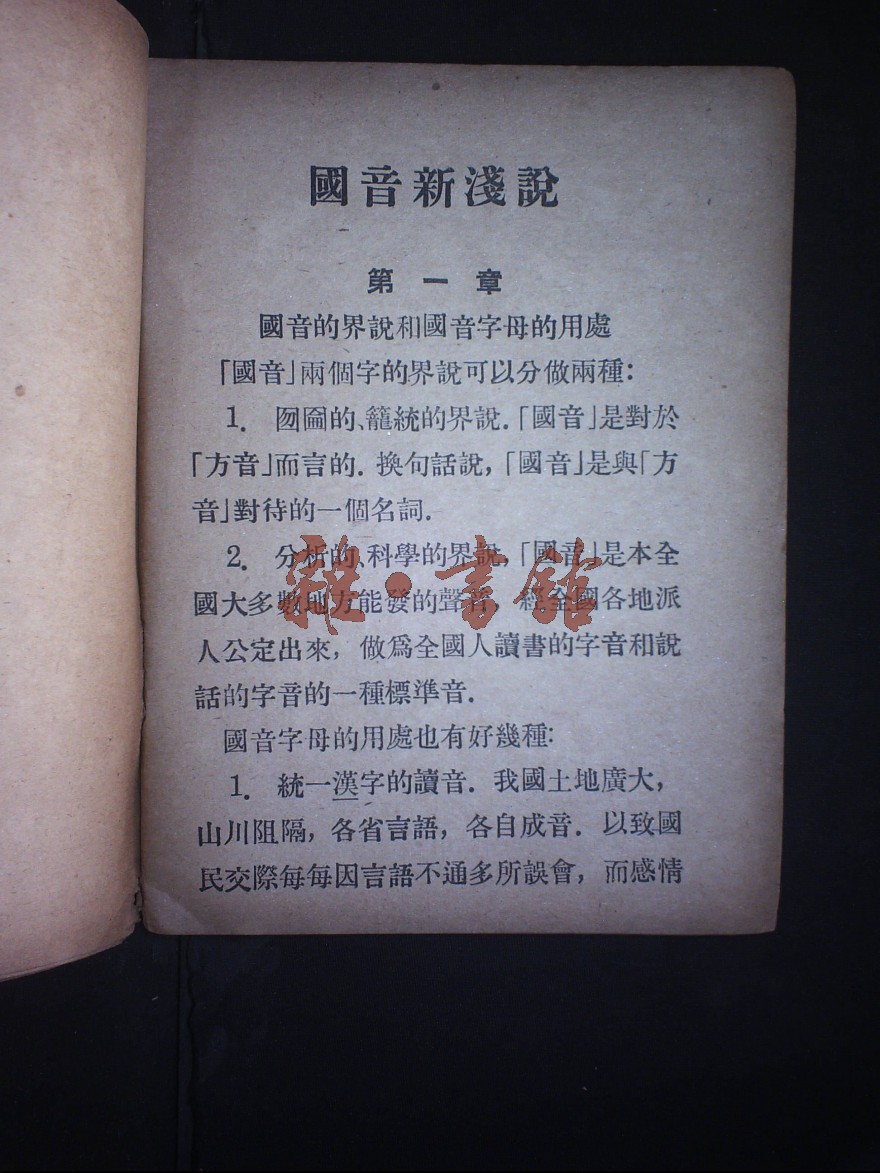 國音新淺說
第一章
國音的界說和國音字母的用處
「國音」兩個字的界說可以分做兩種：
1. 囫圇的、籠統的界說.「國音」是對於
「方音」而言的. 換句話說，「國音」是與「方
音」對待的一個名詞.
2. 分析的、科學的界說，「國音」是本全
國大多數地方能發的聲音，經全國各地派
人公定出來，做爲全國人讀書的字音和說
話的字音的一種標準音.
國音字母的用處也有好幾種：
1. 統一漢字的讀音. 我國土地廣大，
山川阻隔，各省言語，各自成音. 以致國
民交際每每因言語不通多所誤會，而感情
雜·書館